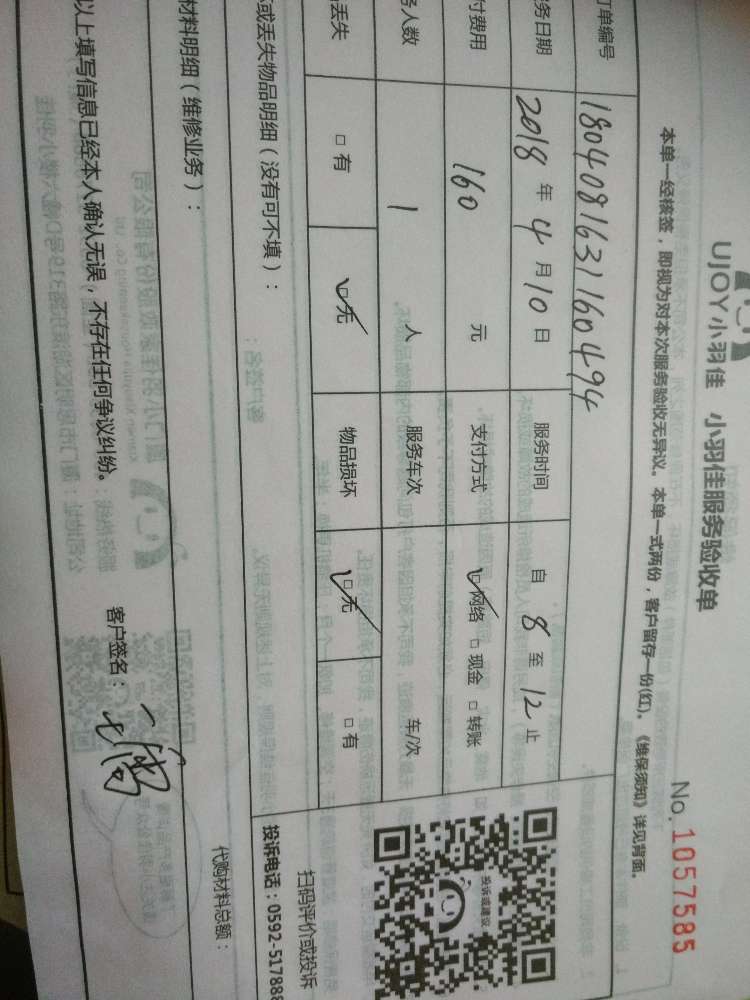 UJOY小羽佳 小羽佳服务验收单
No. 1057585
本单一经核签，即视为对本次服务验收无异议。本单一式两份，客户留存一份(红)。《维保须知》详见背面。
订单编号 1804081631160494
务日期 2018 年 4 月 10 日 服务时间 自 8 至 12 止
付费用 160 元 支付方式 ☑网络 □现金 □转账
务人数 1 人 服务车次 车/次
丢失 □有 ☑无 物品损坏 ☑无 □有
投诉或建议
扫码评价或投诉
或丢失物品明细（没有可不填）：
投诉电话：0592-517888
材料明细（维修业务）：
代购材料总额：
以上填写信息已经本人确认无误，不存在任何争议纠纷。
客户签名：